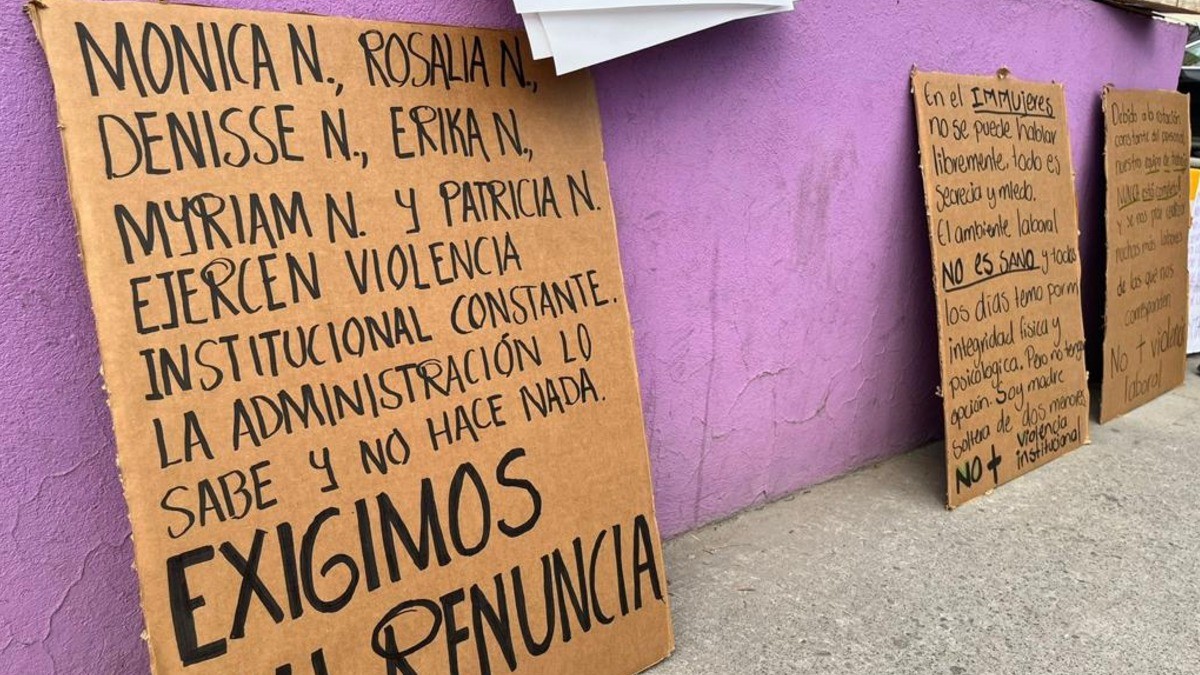 MONICA N., ROSALIA N.,
DENISSE N., ERIKA N.,
MYRIAM N. Y PATRICIA N.
EJERCEN VIOLENCIA
INSTITUCIONAL CONSTANTE.
LA ADMINISTRACIÓN LO
SABE Y NO HACE NADA.
EXIGIMOS
SU RENUNCIA
En el IMMUjeres
no se puede hablar
libremente, todo es
secrecía y miedo.
El ambiente laboral
NO es SANO y todos
los días temo por mi
integridad física y
psicológica. Pero no tengo
opción. Soy madre
soltera de dos menores
NO + violencia
institucional
Debido a la rotación
constante del personal
nuestro equipo de trabajo
NUNCA está completo
y se nos pide realizar
muchas más labores
de las que nos
corresponden
No + violencia
laboral